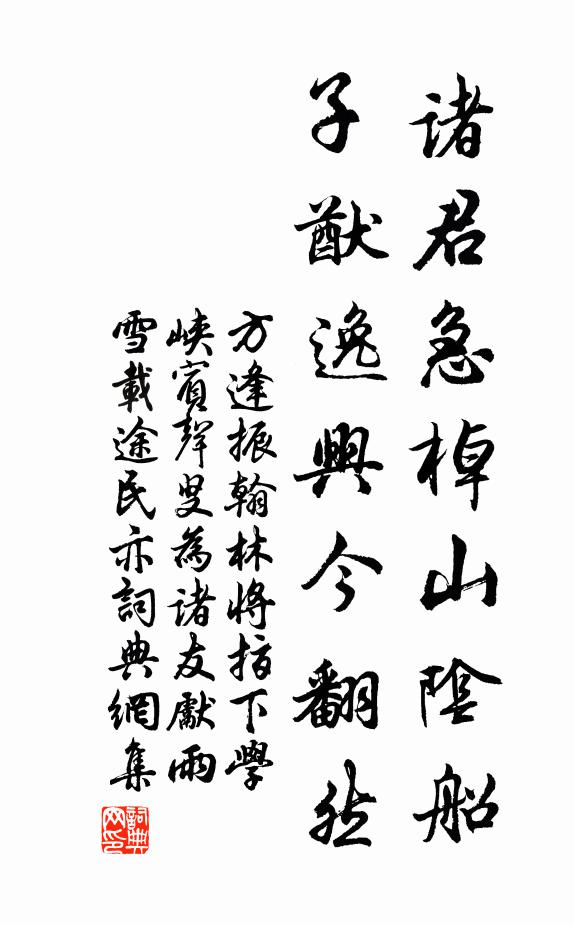 諸君急棹山陰船
子猷逸興今翻然
方逢振翰林將指下學
峽賓聲叟為諸友獻雨
雪載途民亦詞典網集
詞典
网印